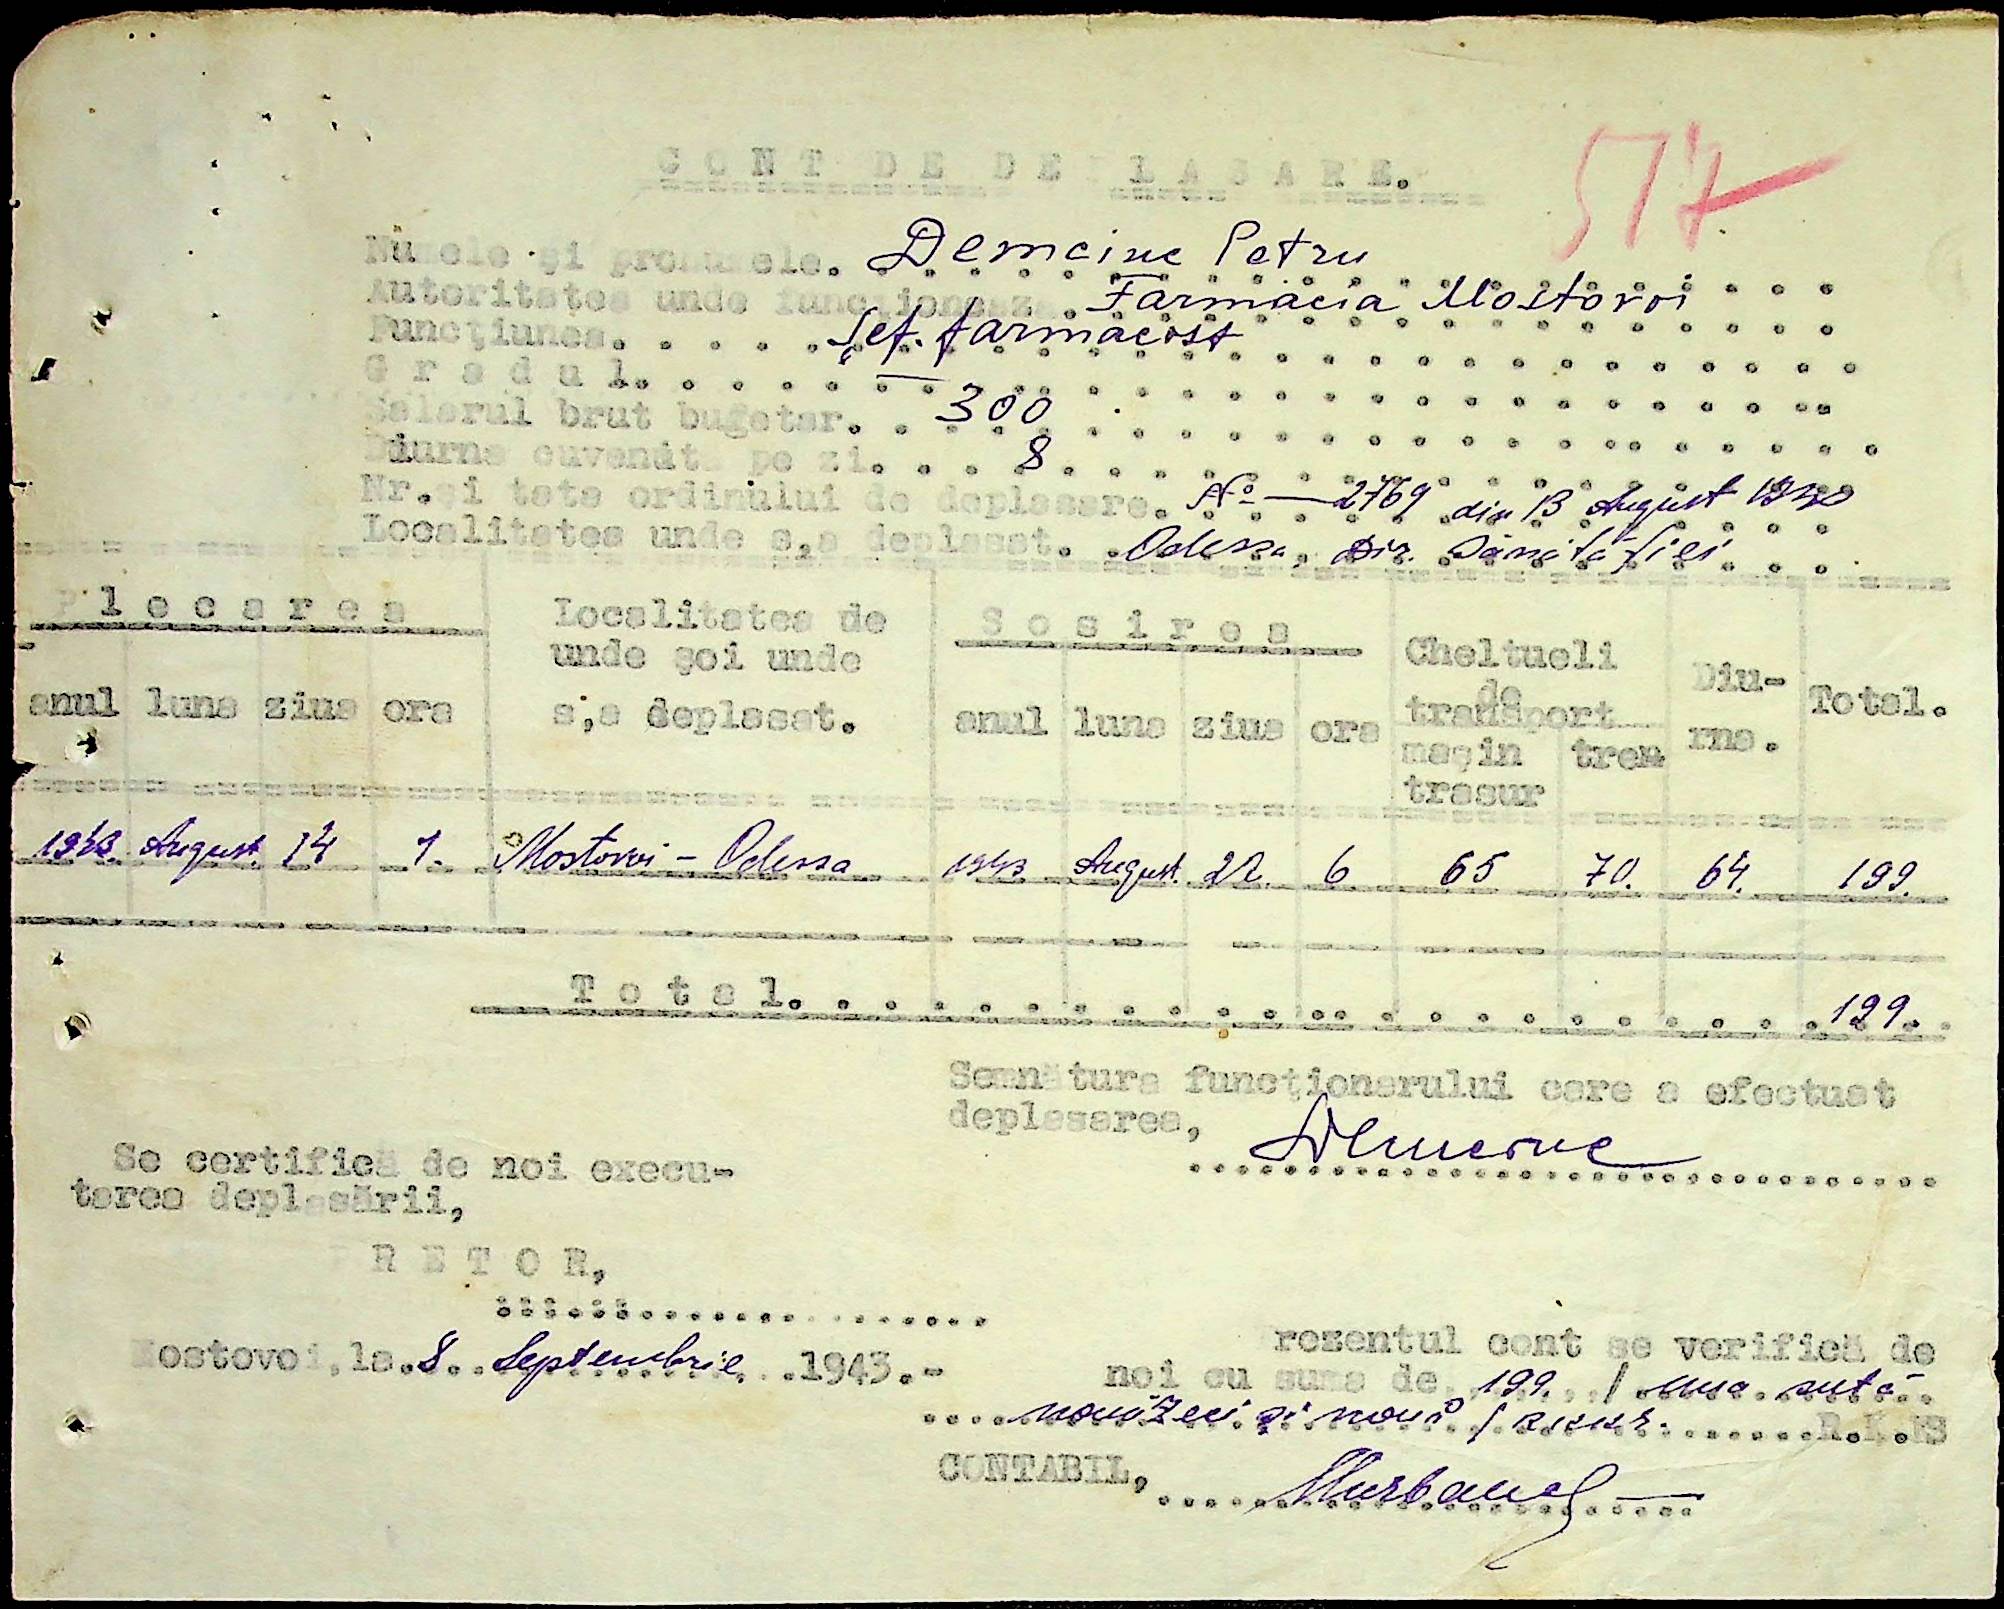 CONT DE DEPLASARE.
517
Numele și pronumele. Demciuc Petru
Autoritatea unde funcționeaza. Farmacia Mostovoi
Funcțiunea. Șef. farmacist
Gradul. —
Salarul brut bugetar. 300
Diurna cuvenăta pe zi. 8
Nr. și tata ordinului de deplasare. No — 2769 din 13 August
Localitatea unde s,a deplasat. Odessa, Dir. Sănătăției
Plecarea Localitatea de unde șoi unde s,a deplasat. Sosirea Cheltueli de transport Diu-rna. Total.
anul luna ziua ora anul luna ziua ora mașin trasur tren
1943 August. 14 7. Mostovoi – Odessa 1943 August. 22. 6 65 70. 64. 199.
Total. 199.
Semnătura funcționarului care a efectuat
deplasarea,
Se certifică de noi execu-
tarea deplasării,
PRETOR,
Mostovoi, la 8 Septembrie 1943.-
Prezentul cont se verifică de
noi cu suma de 199. / una sută
nouăzeci și nouă / R.K.KS
CONTABIL,